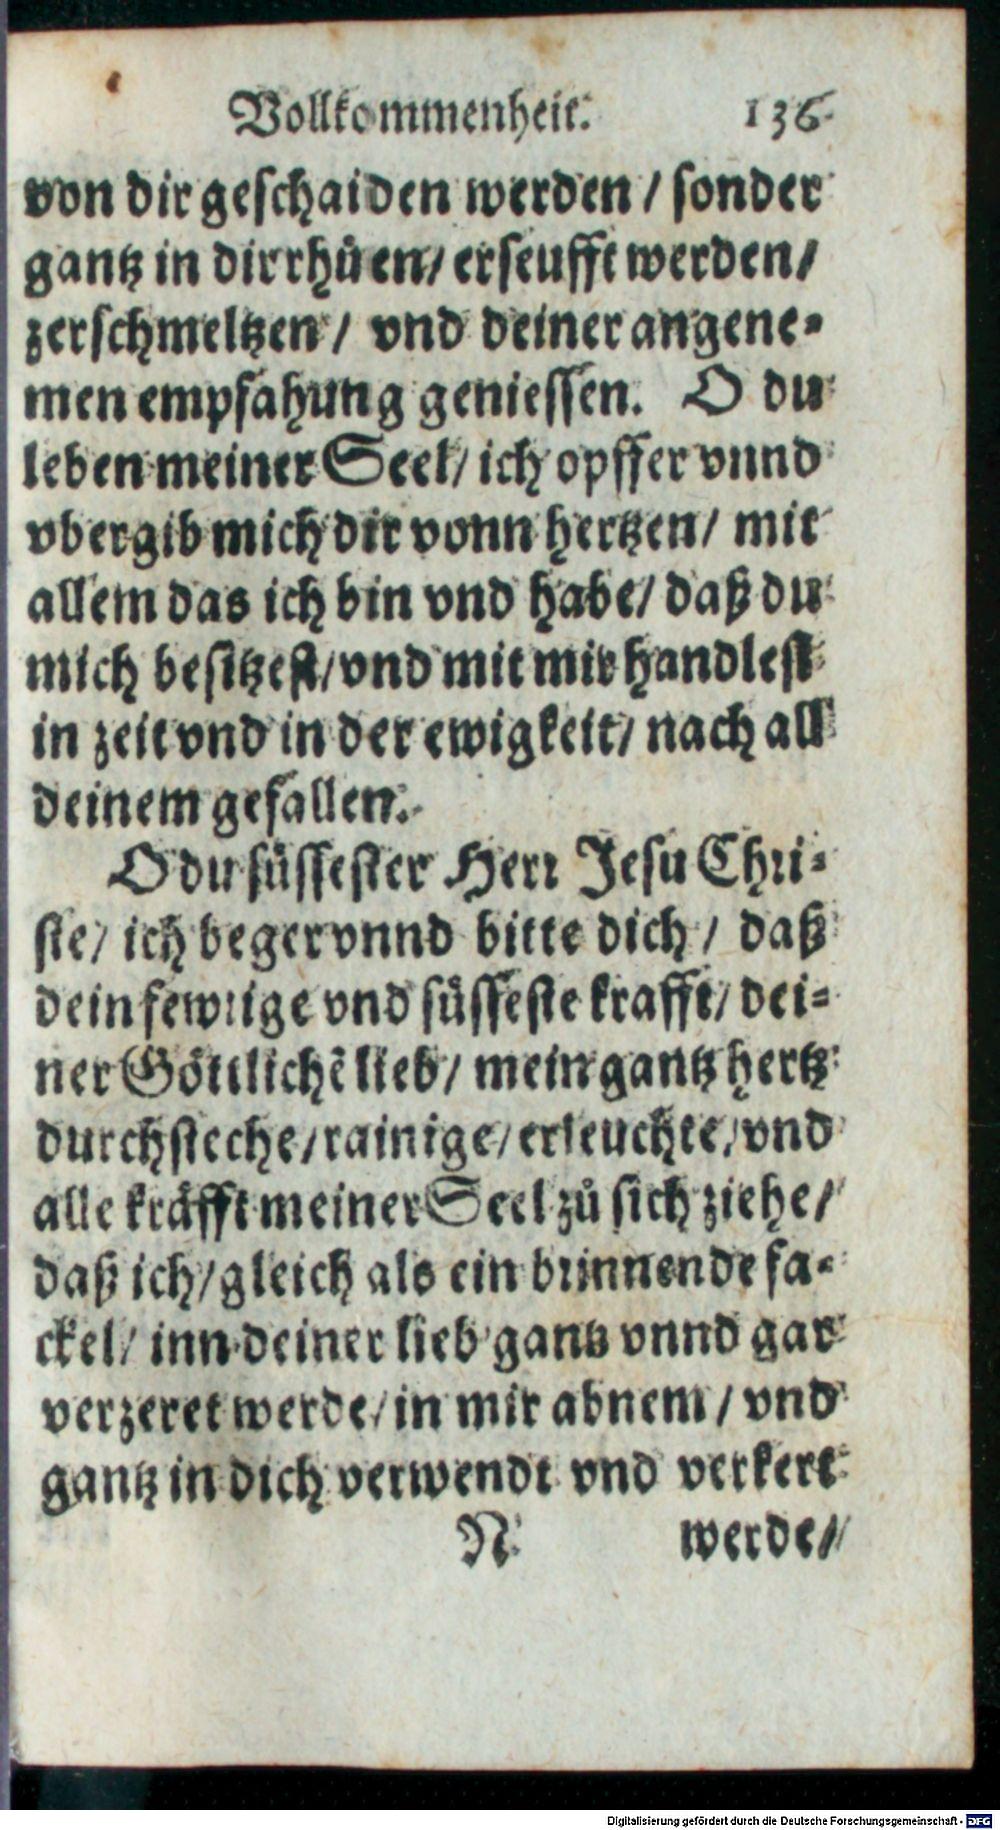 Vollkommenheit. 136
von dir geschaiden werden / sonder
gantz in dir rhůen / erseufft werden /
zerschmeltzen / vnd deiner angene-
men empfahung geniessen. O du
leben meiner Seel / ich opffer vnnd
vbergib mich dir vonn hertzen / mit
allem das ich bin vnd habe / daß du
mich besitzest / vnd mit mir handlest
in zeit vnd in der ewigkeit / nach all
deinem gefallen.
O du süssester Herr Jesu Chri-
ste / ich beger vnnd bitte dich / daß
dein fewrige vnd süsseste krafft / dei-
ner Göttlichẽ lieb / mein gantz hertz
durchsteche / rainige / erleuchte / vnd
alle kräfft meiner Seel zů sich ziehe /
daß ich / gleich als ein brinnende fa-
ckel / inn deiner lieb gantz vnnd gar
verzeret werde / in mir abnem / vnd
gantz in dich verwendt vnd verkert
N werde /
Digitalisierung gefördert durch die Deutsche Forschungsgemeinschaft - DFG